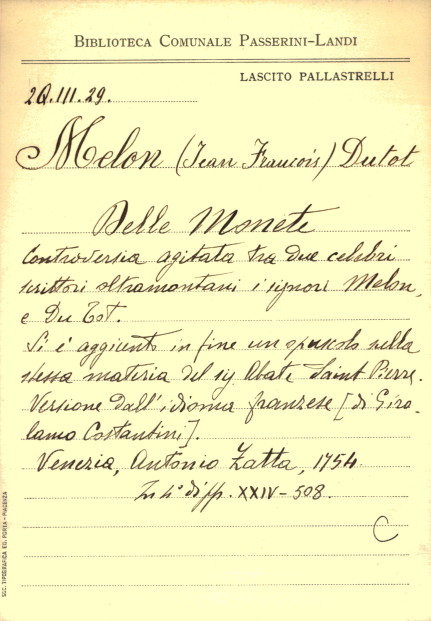 BIBLIOTECA COMUNALE PASSERINI-LANDI
LASCITO PALLASTRELLI
2Q.III.29.
Melon (Jean François) Dutot
Delle Monete
Controversia agitata tra due celebri
scrittori oltramontani i signori Melon,
e Du Tot.
Si è aggiunto in fine un opuscolo nella
stessa materia del sig. Abate Saint Pierre.
Versione dall'idioma franzese [di Giro-
lamo Costantini].
Venezia, Antonio Zatta, 1754.
In 4° di pp. XXIV-508.
C
SOC. TIPOGRAFICA ED. PORTA - PIACENZA